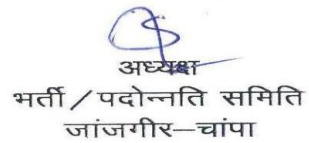 अध्यक्ष
भर्ती / पदोन्नति समिति
जांजगीर–चांपा